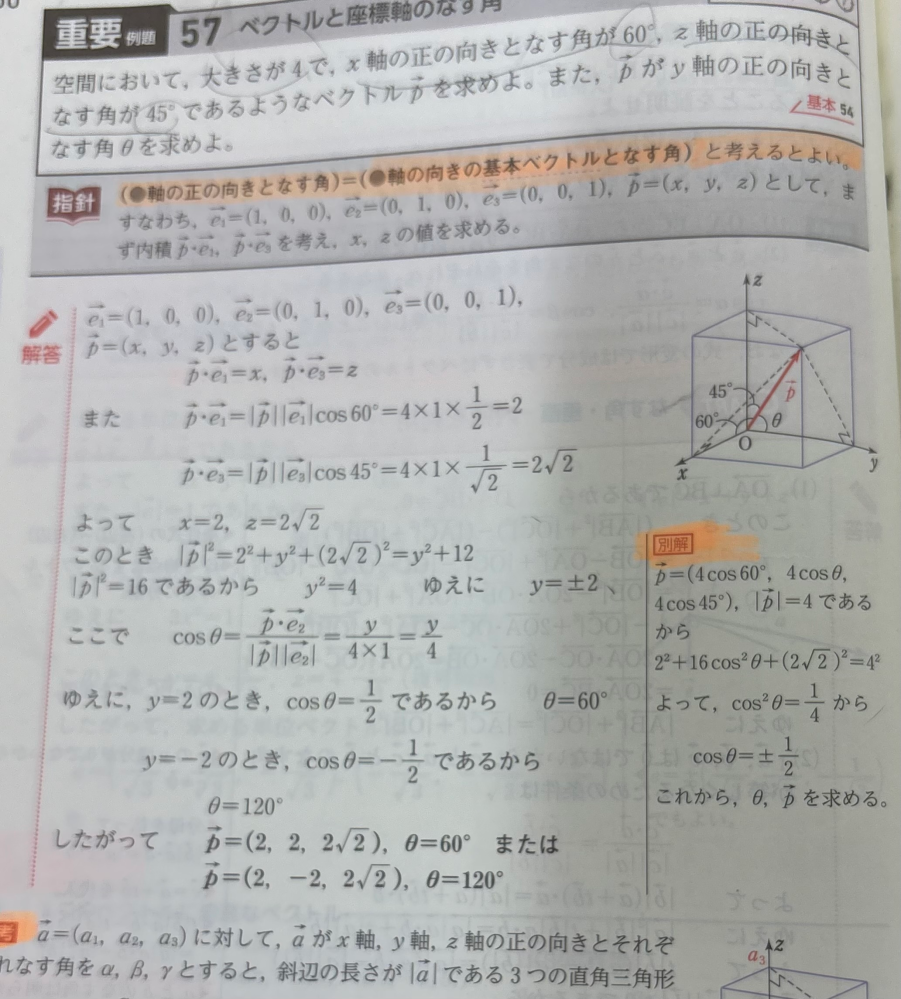 重要 例題 57 ベクトルと座標軸のなす角
空間において，大きさが4で，x軸の正の向きとなす角が60°，z軸の正の向きと
なす角が45°であるようなベクトルp⃗を求めよ。また，p⃗がy軸の正の向きと
なす角θを求めよ。
基本 54
指針
(●軸の正の向きとなす角)＝(●軸の向きの基本ベクトルとなす角) と考えるとよい。
すなわち，e₁⃗=(1, 0, 0)，e₂⃗=(0, 1, 0)，e₃⃗=(0, 0, 1)，p⃗=(x, y, z)として，ま
ず内積p⃗・e₁⃗，p⃗・e₃⃗を考え，x，zの値を求める。
解答
e₁⃗=(1, 0, 0)，e₂⃗=(0, 1, 0)，e₃⃗=(0, 0, 1)，
p⃗=(x, y, z)とすると
p⃗・e₁⃗=x，p⃗・e₃⃗=z
また p⃗・e₁⃗=|p⃗||e₁⃗|cos60°=4×1×1/2=2
p⃗・e₃⃗=|p⃗||e₃⃗|cos45°=4×1×1/√2=2√2
よって x=2，z=2√2
このとき |p⃗|²=2²+y²+(2√2)²=y²+12
|p⃗|²=16であるから y²=4 ゆえに y=±2
ここで cosθ=p⃗・e₂⃗/|p⃗||e₂⃗|=y/4×1=y/4
ゆえに，y=2のとき，cosθ=1/2であるから θ=60°
y=-2のとき，cosθ=-1/2であるから
θ=120°
したがって p⃗=(2, 2, 2√2)，θ=60° または
p⃗=(2, -2, 2√2)，θ=120°
z
45°
p⃗
60°
θ
O
x
y
別解
p⃗=(4cos60°, 4cosθ,
4cos45°)，|p⃗|=4である
から
2²+16cos²θ+(2√2)²=4²
よって，cos²θ=1/4から
cosθ=±1/2
これから，θ，p⃗を求める。
考 a⃗=(a₁, a₂, a₃)に対して，a⃗がx軸，y軸，z軸の正の向きとそれぞ
れなす角をα，β，γとすると，斜辺の長さが|a⃗|である3つの直角三角形
z
a₃